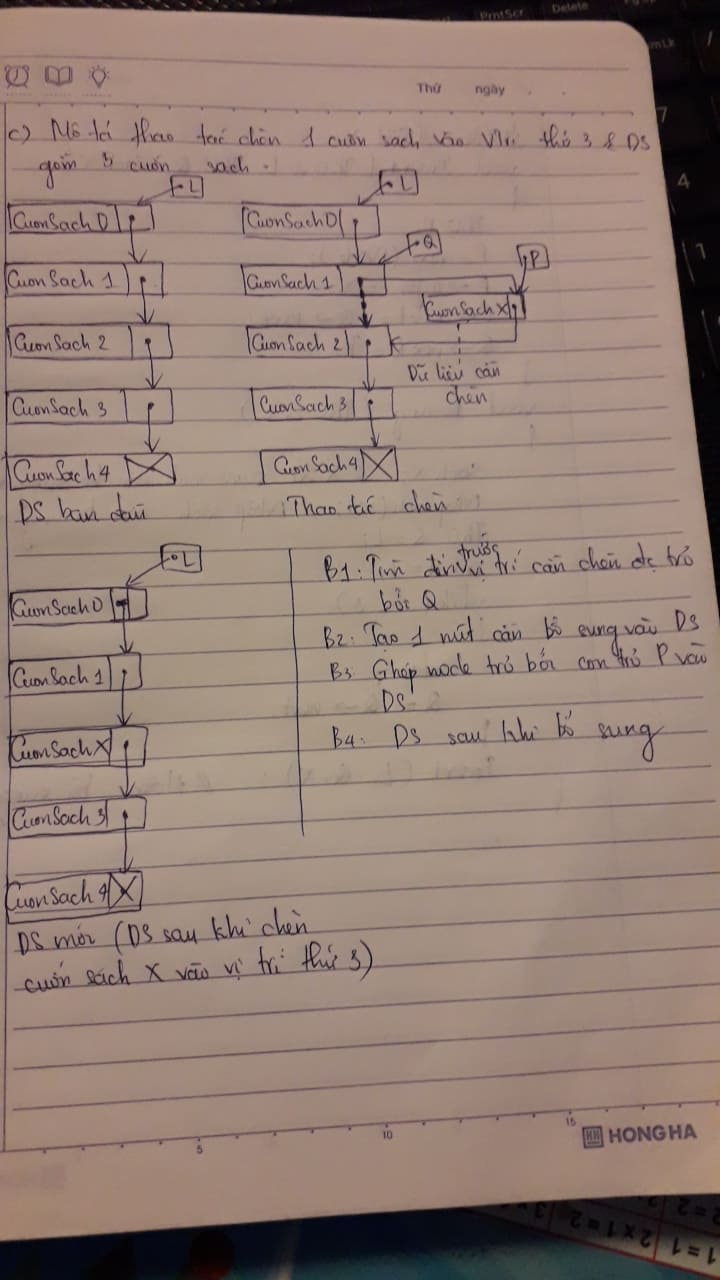 PrntScr
Delete
7
4
Thứ ngày
c) Mô tả thao tác chèn 1 cuốn sách vào Vtrí thứ 3 & DS
gồm 5 cuốn sách.
L
CuonSach 0
CuonSach 1
CuonSach 2
CuonSach 3
CuonSach 4
DS ban đầu
L
CuonSach 0
Q
CuonSach 1
P
CuonSach X
CuonSach 2
Dữ liệu cần
chèn
CuonSach 3
CuonSach 4
Thao tác chèn
L
CuonSach 0
CuonSach 1
CuonSach X
CuonSach 3
CuonSach 4
DS mới (DS sau khi chèn
cuốn sách X vào vị trí thứ 3)
trước
B1: Tìm vị trí cần chèn đc trỏ
bởi Q
B2: Tạo 1 nút cần bổ sung vào DS
B3 Ghép node trỏ bởi con trỏ P vào
DS
B4: DS sau khi bổ sung
5
10
15
HH HONG HA
2 x 1 = 2